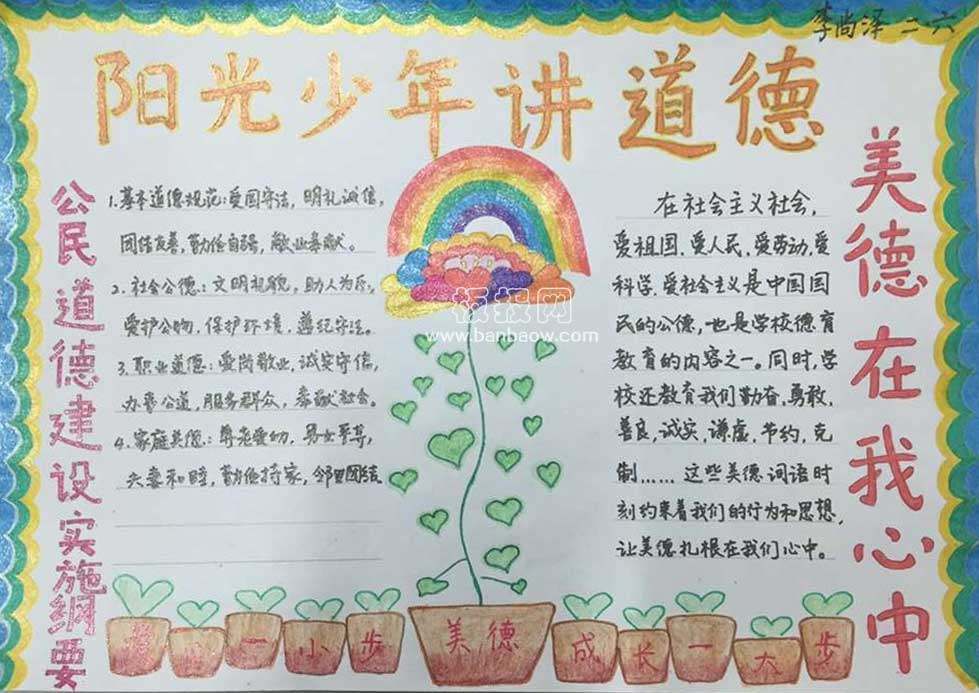 李尚泽 二六
阳光少年讲道德
公民道德建设实施纲要
1.基本道德规范:爱国守法,明礼诚信,
团结友善,勤俭自强,敬业奉献。
2.社会公德:文明礼貌,助人为乐,
爱护公物,保护环境,遵纪守法。
3.职业道德:爱岗敬业,诚实守信,
办事公道,服务群众,奉献社会。
4.家庭美德:尊老爱幼,男女平等,
夫妻和睦,勤俭持家,邻里团结
板报网
www.banbaow.com
在社会主义社会,
爱祖国、爱人民、爱劳动、爱
科学、爱社会主义是中国国
民的公德,也是学校德育
教育的内容之一。同时,学
校还教育我们勤奋,勇敢,
善良,诚实,谦虚,节约,克
制……这些美德词语时
刻约束着我们的行为和思想,
让美德扎根在我们心中。
美德在我心中
一小步
美德
成长一大步